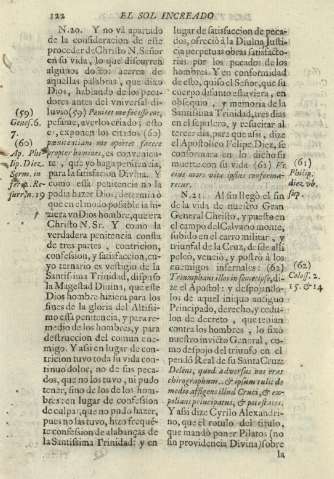 122 EL SOL INCREADO
N.20. Y no và apartado
de la consideracion de este
proceder de Christo N. Señor
en su vida, lo que discurren
algunos doctos acerca de
aquellas palabras, que dixo
Dios, hablando de los peca-
dores antes del vniversal di-
luvio (59)
pesame, averlos criado; esto
es, exponen los citados (60)
es convenien-
te, que yo haga penitencia,
para la satisfacion Divina. Y
como esta penitencia no la
podia hazer Dios, determinò
que en el modo possible la hi-
ziera vn Dios hombre, que era
Christo N. Sr. Y como la
verdadera penitencia consta
de tres partes, contricion,
confession, y satisfaccion, cu-
yo ternario es vestigio de la
Santissima Trinidad, dispuso
la Magestad Divina, que este
Dios hombre hiziera para los
fines de la gloria del Altissi-
mo esta penitencia, y para re-
medio de los hombres, y para
destruccion del comun ene-
migo. Y assi en lugar de con-
tricion tuvo toda su vida con-
tinuo dolor, no de sus peca-
dos, que no los tuvo, ni pudo
tener, sino de los de los hom-
bres: en lugar de confession
de culpas, que no pudo hazer,
pues no las tuvo, hizo frequē-
te confession de alabanças de
la Santissima Trinidad: y en
(59)
Genes. 6.
7.
(60)
Ap. Phi-
lip. Diez.
Serm. in
fer. 2. Re-
surr. n. 19
lugar de satisfaccion de peca-
dos, ofreciò à la Divina Justi-
cia perpetuas obras satisfacto-
rias por los pecados de los
hombres. Y en conformidad
de esto, quiso el Señor, que su
cuerpo difunto estuviera, en
obsequio, y memoria de la
Santissima Trinidad, tres dias
en el sepulcro, y resucitar al
tercer dia, para que assi, dize
el Apostolico Felipe Diez, se
conformara en lo dicho su
muerte con su vida (61)

N.21. Assi llegò el fin
de la vida de nuestro Gran
General Christo, y puesto en
el campo del Calvario monte,
subido en el carro militar, y
triunfal de la Cruz, desde alli
peleò, venciò, y postrò à los
enemigos infernales: (62)
Triumphans illos in semetipso, di-
ze el Apostol: y despojando-
los de aquel iniquo antiguo
Principado, derecho, y cedu-
lon de decreto, que tenian
contra los hombres, lo fixò
nuestro invicto General, co-
mo despojo del triunfo en el
Real de su Santa Cruz:
Delens, quod adversus nos erat
chirographum.. & ipsum tulit de
medio affigens illud Cruci, & ex-
polians principatus, & potestates.
Y assi dize Cyrilo Alexandri-
no, que el rotulo del titulo,
que mandò poner Pilatos (no
sin providencia Divina) sobre
la
(61)
Philip.
diez vb.
sup.
(62)
Coloss. 2.
15. & 14